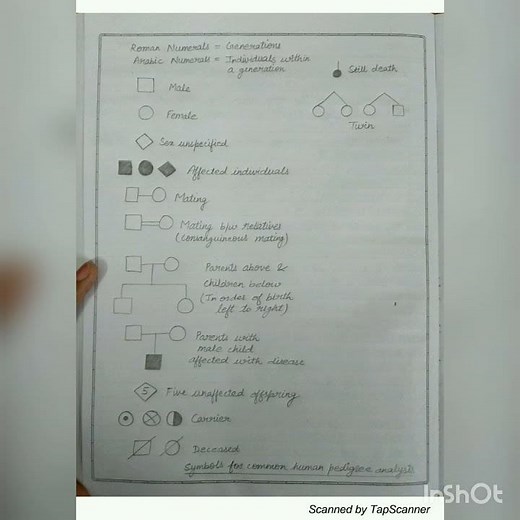 Roman Numerals = Generations
Arabic Numerals = Individuals within
a generation
Still death
Male
Female
Twin
Sex unspecified
Affected individuals
Mating
Mating b/w Relatives
(consanguineous mating)
Parents above &
children below
(In order of birth
left to right)
Parents with
male child
affected with disease
5 Five unaffected offspring
Carrier
Deceased
Symbols for common human pedigree analysis
InShOt
Scanned by TapScanner